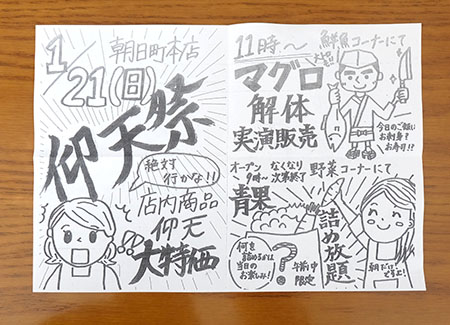 1/21(日)
朝日町本店
仰天祭
絶対
行かな!!
店内商品
仰天
大特価
11時〜
鮮魚コーナーにて
マグロ
解体
実演販売
今日のご飯に
お刺身?
お寿司??
オープン
9時〜
なくなり
次第終了
野菜コーナーにて
青果
詰め放題
何を
詰めるかは
当日の
お楽しみ!
?
午前中
限定
朝だけ
ですよ!